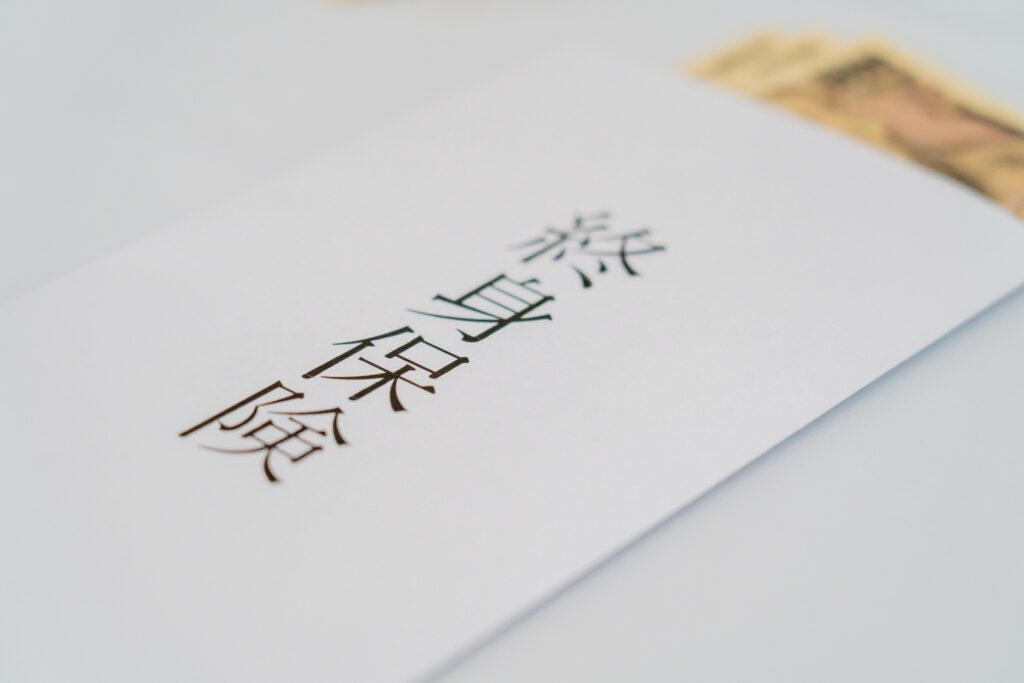 終身保険